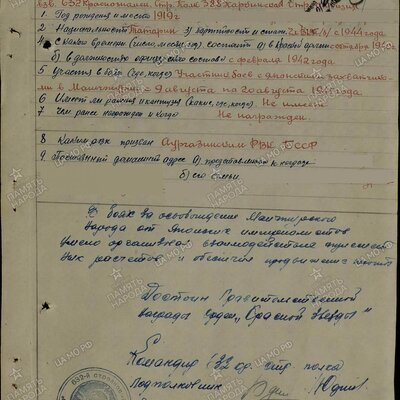 взв. 632 Краснознам. Стр. Полк 388 Харбинская Стр. дивизия
1. Год рождения и место 1919 г.
2. Национальность Татарин 3) партийность и стаж с 1944 года
4. С какого времени (число, месяц, год) состоит а) в Красной армии октября 1940 г.
б) в должностях офицерского состава с февраля 1942 года
5. Участие в боях (где, когда) Участник боев с японскими захватчика-
ми в Манчжурии с 9 августа по 20 августа 1945 года
6. Имеет ли ранения и контузии (какие, где, когда) Не имеет
7. Чем ранее награжден и когда Не награжден
8. Каким РВК призван Аургазинским РВК БССР
9. Постоянный домашний адрес а) представляемого к награде
б) его семьи
В боях за освобождение Манчжурского
народа от Японских империалистов
Умело организовал взаимодействие
Достоин Правительственной
награды Орден „Красной Звезды"
Командир стр. полка
Подполковник
ПАМЯТЬ НАРОДА
ЦА МО.РФ